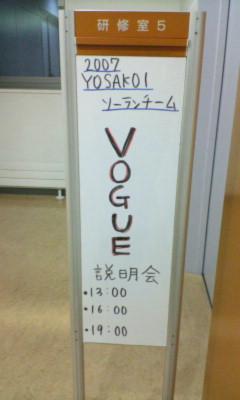 研修室5
2007
YOSAKOI
ソーランチーム
VOGUE
説明会
•13:00
•16:00
•19:00